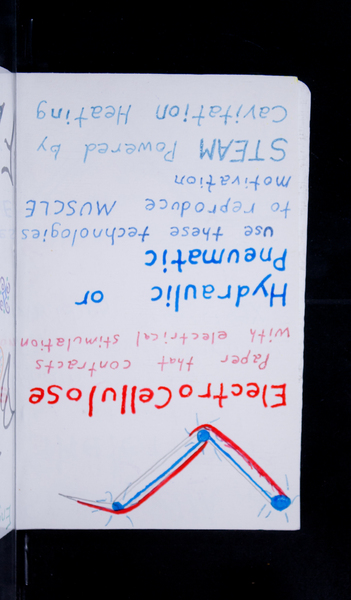 ElectroCellulose
Paper that contracts
with electrical stimulation
Hydraulic or
Pneumatic
use these technologies
to reproduce MUSCLE
motivation
STEAM Powered by
Cavitation Heating